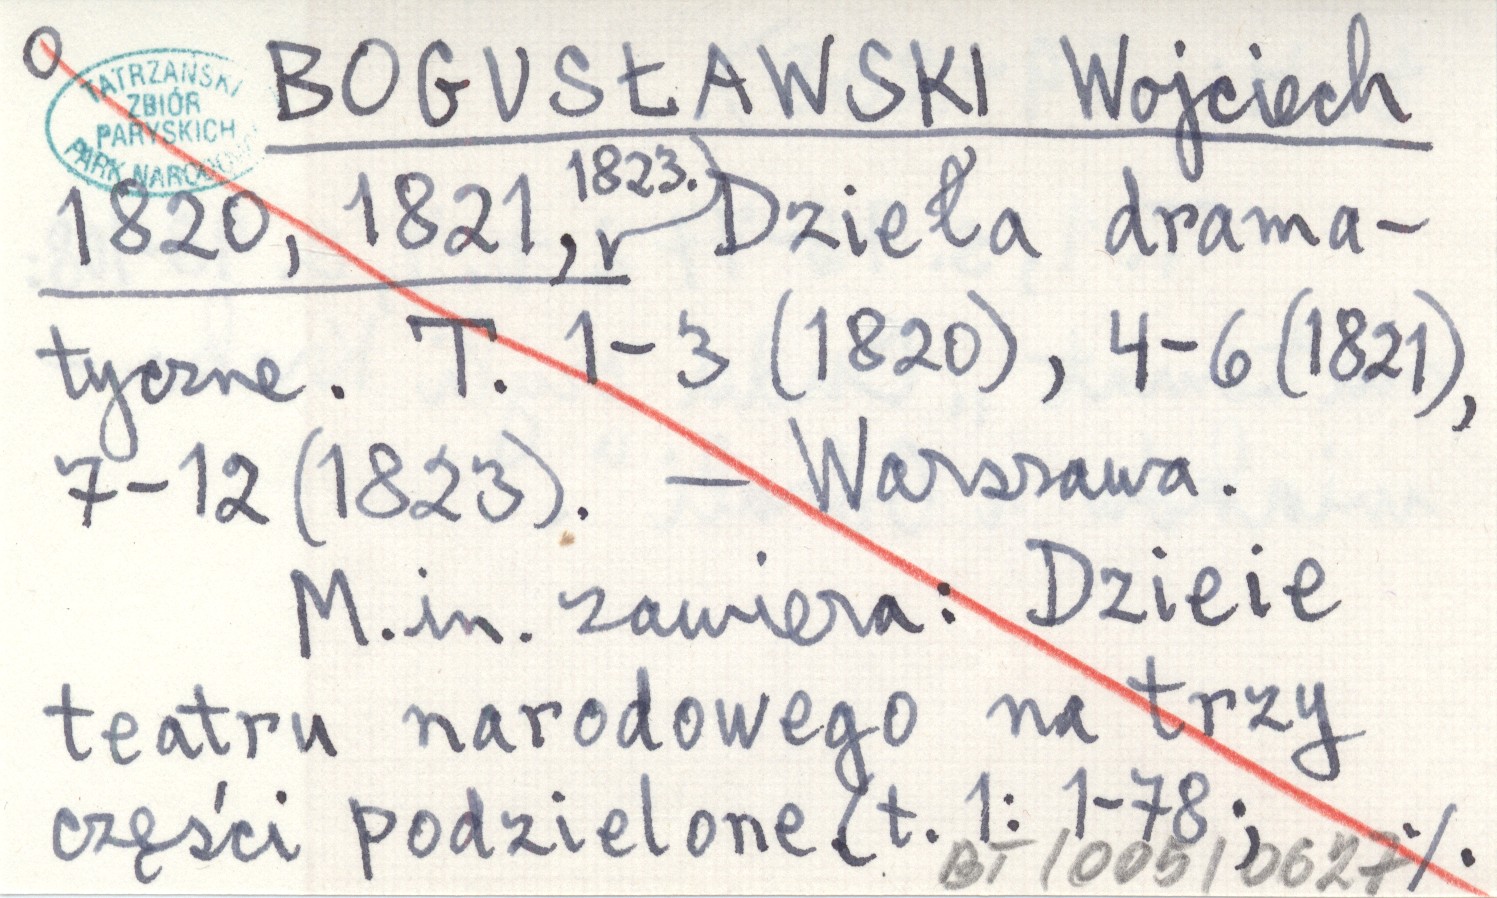 O
TATRZAŃSKI
ZBIÓR
PARYSKICH
PARK NARODOWY
BOGUSŁAWSKI Wojciech
1820, 1821, 1823. Dzieła drama-
tyczne. T. 1-3 (1820), 4-6 (1821),
7-12 (1823). — Warszawa.
M.in. zawiera: Dzieie
teatru narodowego na trzy
części podzielone (t. 1: 1-78; ./.
BT/005/0627